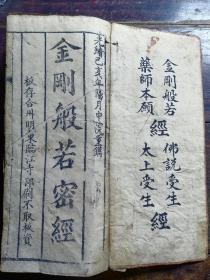 金剛般若
藥師本願
經
佛說受生
太上受生
經
光緒己亥年陽月中浣重鐫
金剛般若密經
板存合州明東臨江寺印刷不取板資